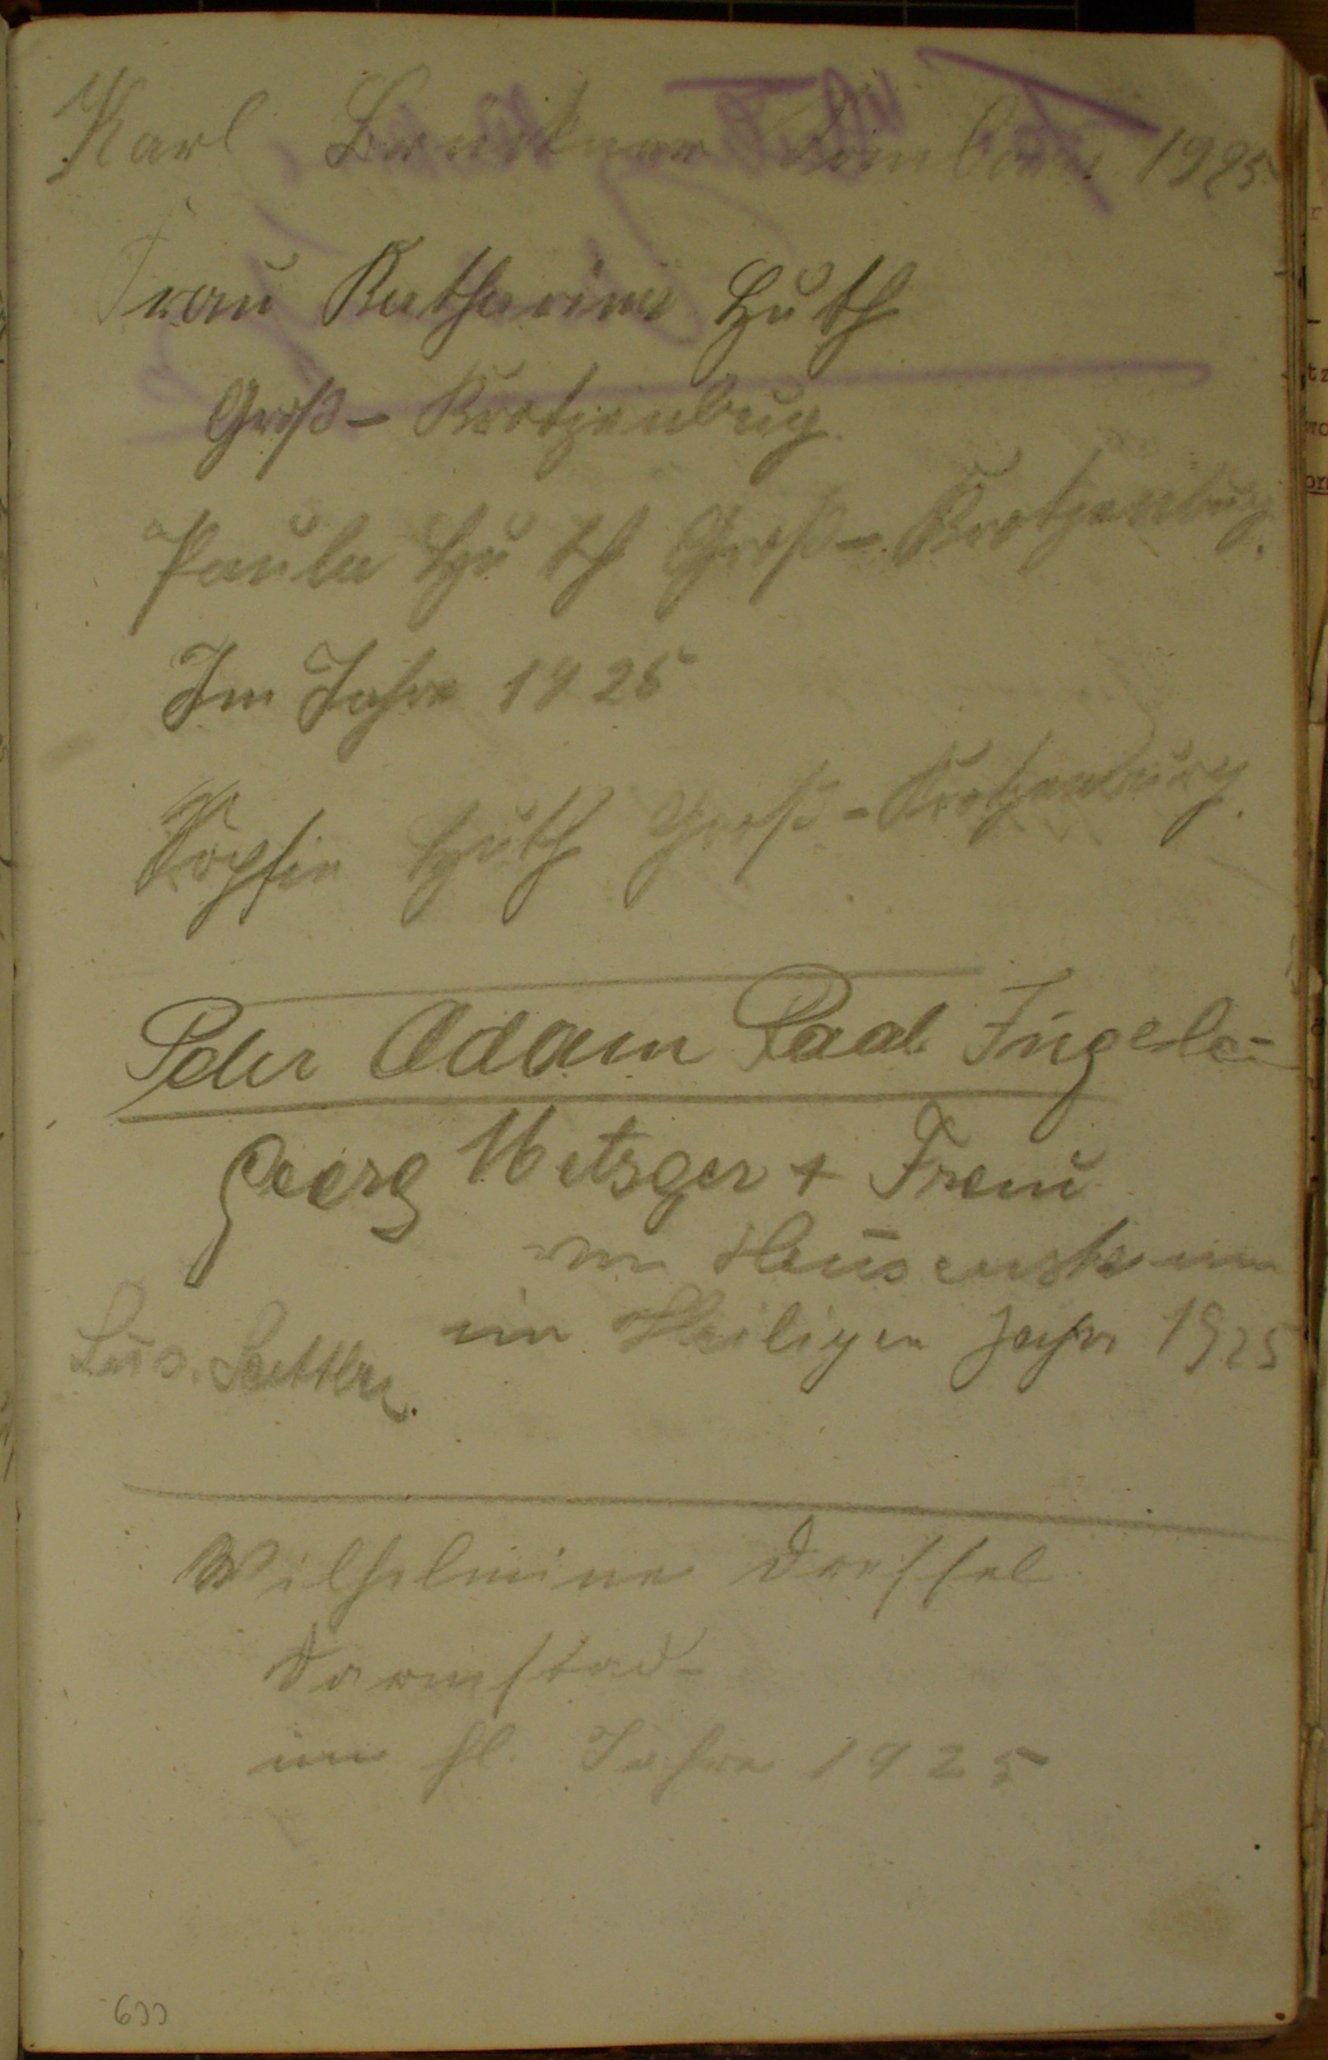 Karl Bruckner 1925
Frau Katharina Huth
Groß-Krotzenbug.
Paula Huth Groß-Krotzenburg.
Im Jahre 1925
Huth Groß-Krotzenburg.
Peter Adam Paul
Georg Metzger + Frau
von Heusenstamm
im Heiligen Jahr 1925
Sattler.
Wilhelmine Dressel
Darmstad-
im hl. Jahre 1925
633